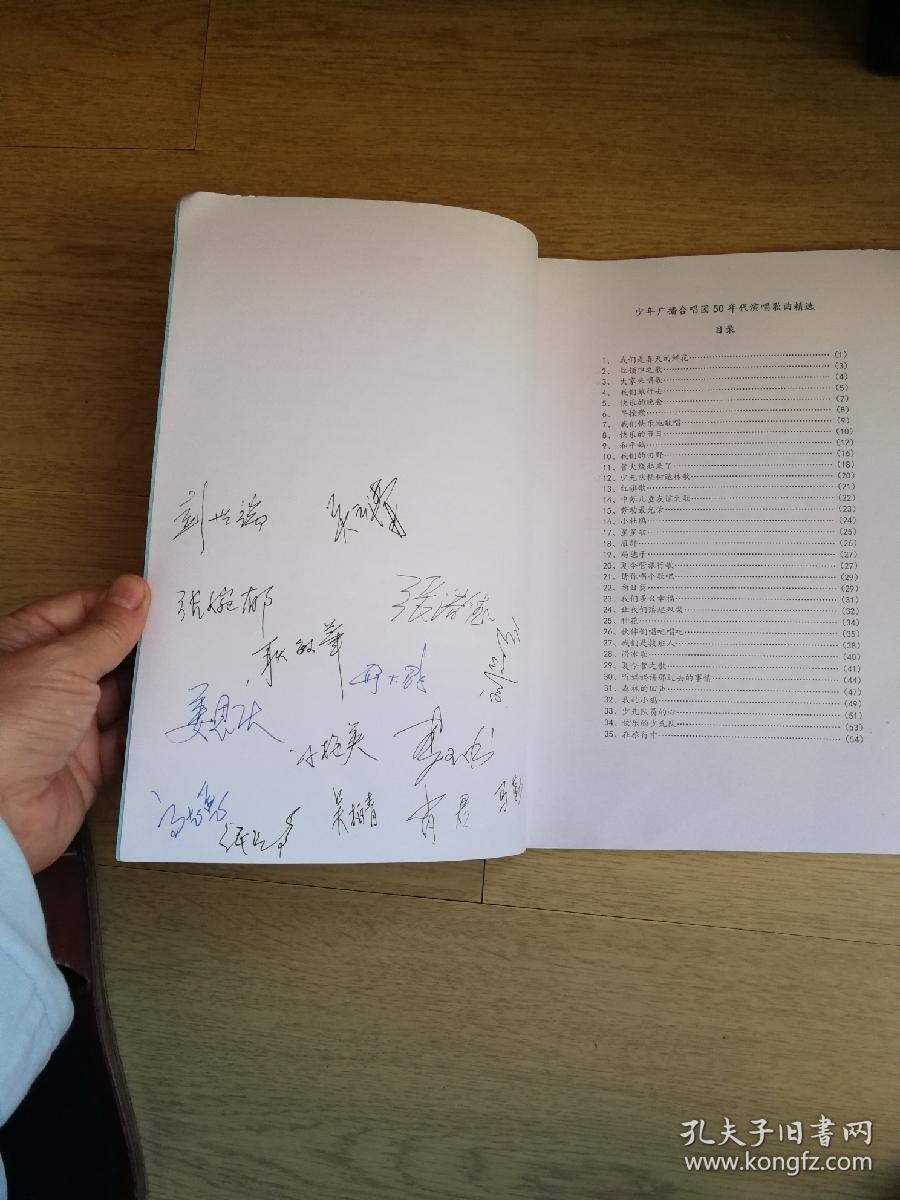 刘兴瑞
张筱郁
张浩惠
耿敏华
姜恩庆
吴柏青
肖君
少年广播合唱团50年代演唱歌曲精选
目录
1、 我们是春天的鲜花 (1)
2、 红领巾之歌 (3)
3、 大家来唱歌 (4)
4、 我们旅行去 (5)
5、 快乐的晚会 (7)
6、 早操歌 (8)
7、 我们快乐地歌唱 (9)
8、 快乐的节日 (10)
9、 和平鸽 (12)
10、 我们的田野 (16)
11、 营火烧起来了 (18)
12、 少先队植树造林歌 (20)
13、 红旗歌 (21)
14、 中苏儿童友谊之歌 (22)
15、 劳动最光荣 (23)
16、 小杜鹃 (24)
17、 星星歌 (25)
18、 雁群 (26)
19、 踢毽子 (27)
20、 夏令营旅行歌 (27)
21、 请你唱个歌吧 (29)
22、 向日葵 (29)
23、 我们多么幸福 (31)
24、 让我们荡起双桨 (32)
25、 种花 (34)
26、 伙伴们唱吧唱吧 (35)
27、 我们是接班人 (38)
28、 滑冰歌 (40)
29、 夏令营之歌 (41)
30、 听妈妈讲那过去的事情 (44)
31、 森林的回声 (47)
32、 我的小鸡 (49)
33、 少先队员的心 (51)
34、 快乐的少先队 (53)
35、 在旅行中 (54)
孔夫子旧书网
www.kongfz.com